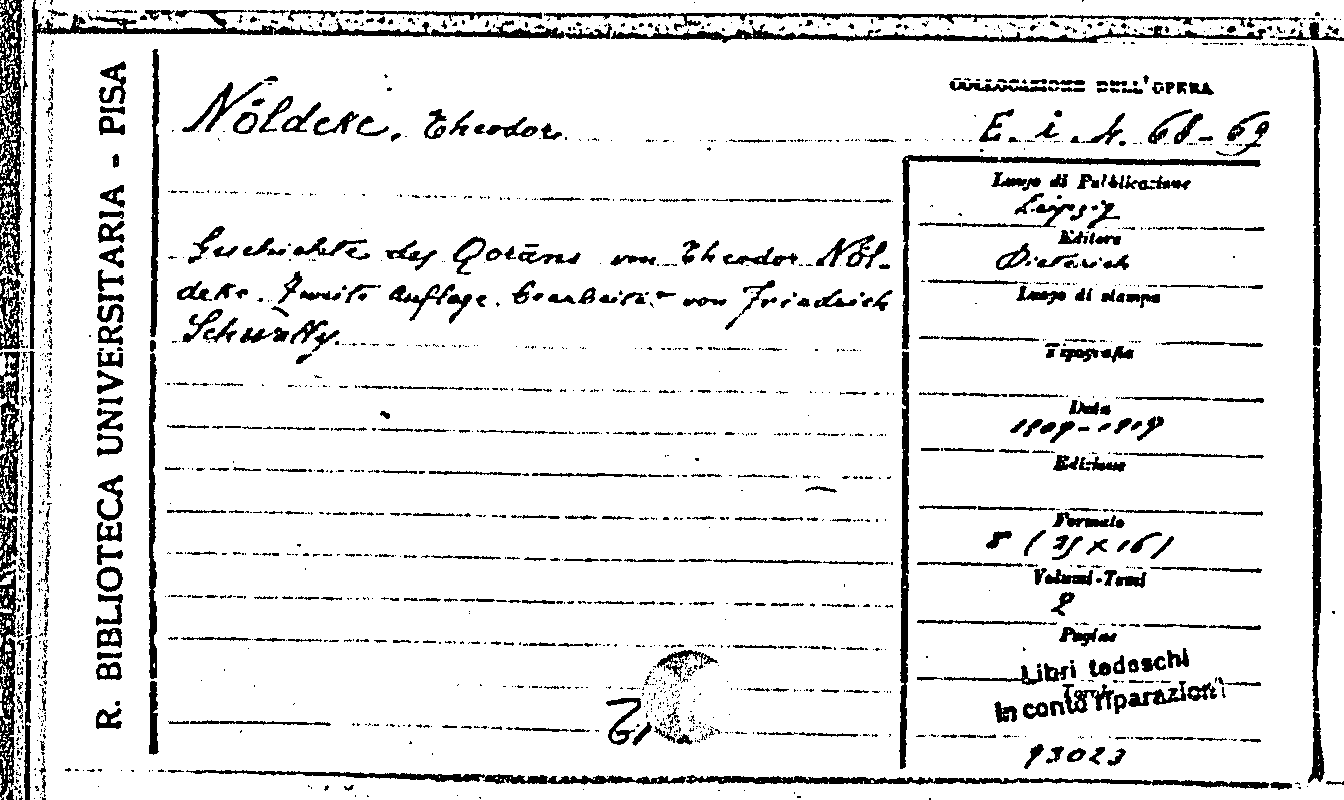 R. BIBLIOTECA UNIVERSITARIA - PISA
COLLOCAZIONE DELL'OPERA
Nöldeke, Theodor
E. i. 4. 68-69
Luogo di Pubblicazione
Leipzig
Geschichte des Qorāns von Theodor Nöl-
deke. Zweite Auflage. bearbeitet von Friedrich
Schwally.
Editore
Dieterich
Luogo di stampa
Tipografia
Data
1909-1919
Edizione
Formato
8 (25 x 16)
Volumi-Tomi
2
Pagine
Libri tedeschi
Tavole
In conto riparazioni
93023